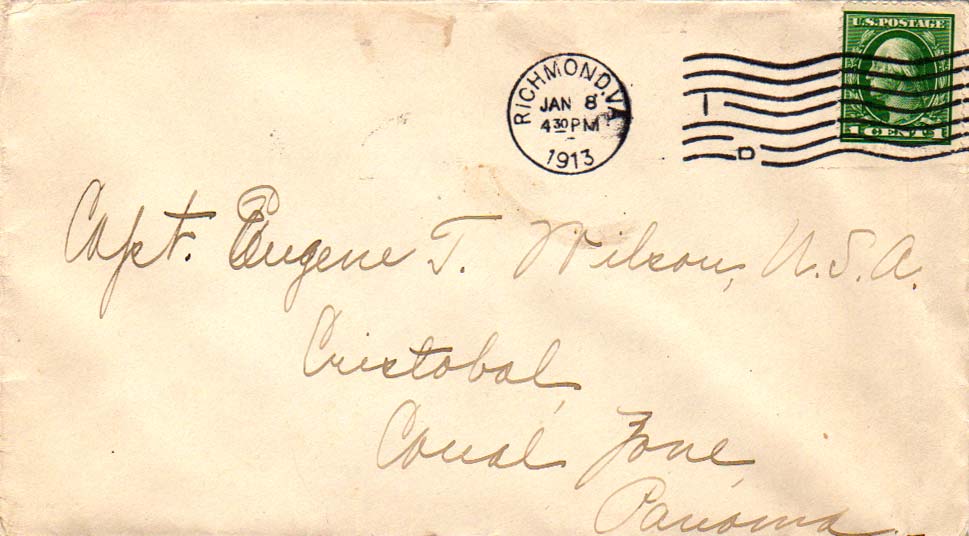 U.S. POSTAGE
1 CENT 1
RICHMOND, VA.
JAN 8
4 30 PM
1913
1
D
Capt. Eugene T. Wilson, U.S.A.
Cristobal,
Canal Zone,
Panama